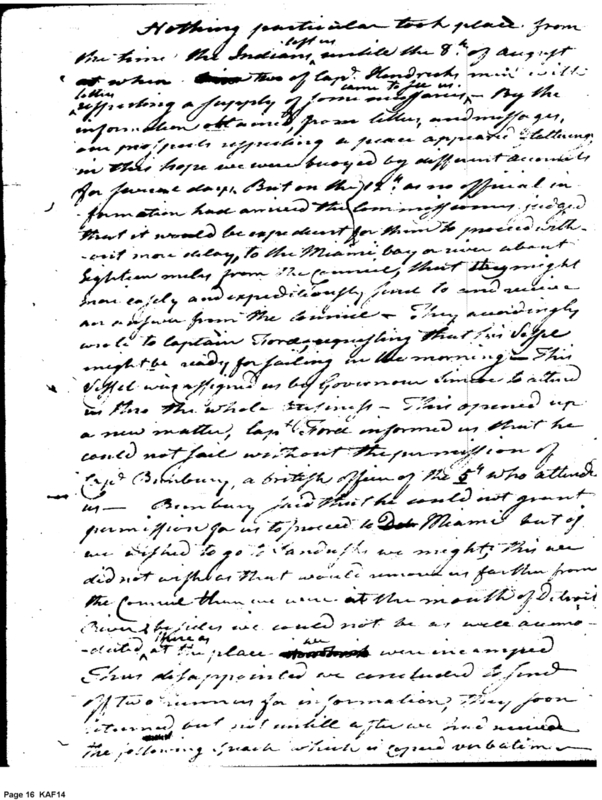 Nothing particular took place from
the time the Indians left us untill the 8th of August
at when two of Capt. Hendricks men with
letters respecting a supply of some necessaries came to see us. - By the
information obtained from letters, and messages,
our prospects respecting a peace appeared flattering
in this hope we were buoyed by different accounts
for several days, But on the 12th as no official in
formation had arrived the Commissioners judged
that it would be expedient for them to proceed with-
-out more delay, to the Miami bay or river about
Eighteen miles from the Council, that they might
more easely and expeditiously send to and receive
an answer from the Council - They accordingly
wrote to Captain Ford, requesting that his Vessel
might be ready for sailing in the morning - This
Vessel was assigned us by Governour Simcoe to attend
us thro the whole business - This opened up
a new matter, Capt. Ford informed us that he
could not sail without the permission of
Capt. Bunbury, a british officer of the 5th who attended
us - Bunbury said that he could not grant
permission for us to proceed to Miami but if
we wished to go to Sandusky we might; this we
did not wish as that would remove us farther from
the Council than we were at the mouth of Detroit
River & besides we could not be as well accomo-
-dated there as at the place we were incamped
Thus disappointed we concluded to send
off two runners for information, they soon
returned but not untill after we had received
the following speech which is copied verbatim -
Page 16 KAF14